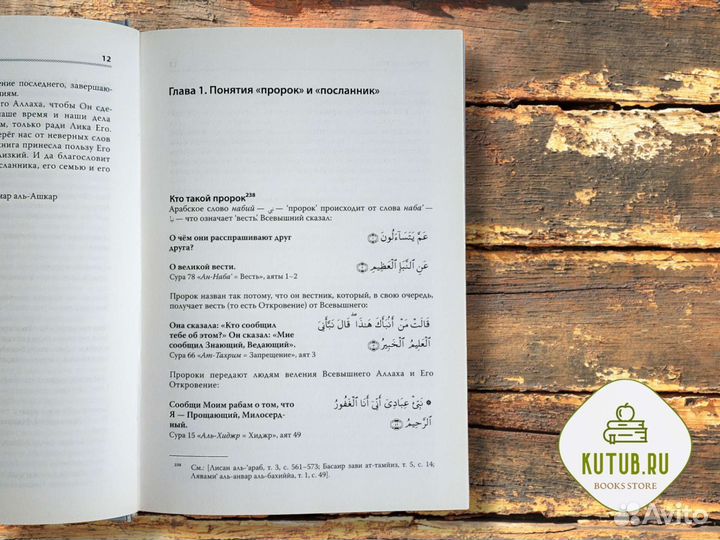 12
ение последнего, завершаю-
ниям.
го Аллаха, чтобы Он сде-
наше время и наши дела
м, только ради Лика Его.
ерёг нас от неверных слов
книга принесла пользу Его
лизкий. И да благословит
сланника, его семью и его
мар аль-Ашкар
Глава 1. Понятия «пророк» и «посланник»
Кто такой пророк²³⁸
Арабское слово набий — نبي — 'пророк' происходит от слова наба' —
نبأ — что означает 'весть'. Всевышний сказал:
О чём они расспрашивают друг
друга?
عَمَّ يَتَسَآءَلُونَ ۝١
О великой вести.
عَنِ ٱلنَّبَإِ ٱلْعَظِيمِ ۝٢
Сура 78 «Ан-Наба' = Весть», аяты 1–2
Пророк назван так потому, что он вестник, который, в свою очередь,
получает весть (то есть Откровение) от Всевышнего:
Она сказала: «Кто сообщил
тебе об этом?» Он сказал: «Мне
сообщил Знающий, Ведающий».
قَالَتْ مَنْ أَنۢبَأَكَ هَـٰذَا ۖ قَالَ نَبَّأَنِىَ
ٱلْعَلِيمُ ٱلْخَبِيرُ ۝٣
Сура 66 «Ат-Тахрим = Запрещение», аят 3
Пророки передают людям веления Всевышнего Аллаха и Его
Откровение:
Сообщи Моим рабам о том, что
Я — Прощающий, Милосерд-
ный.
۞ نَبِّئْ عِبَادِىٓ أَنِّىٓ أَنَا ٱلْغَفُورُ
ٱلرَّحِيمُ ۝٤٩
Сура 15 «Аль-Хиджр = Хиджр», аят 49
²³⁸ См.: [Лисан аль-'араб, т. 3, с. 561–573; Басаир зави ат-тамйиз, т. 5, с. 14;
Лявами' аль-анвар аль-бахиййа, т. 1, с. 49].
KUTUB.RU
BOOKS STORE
Avito